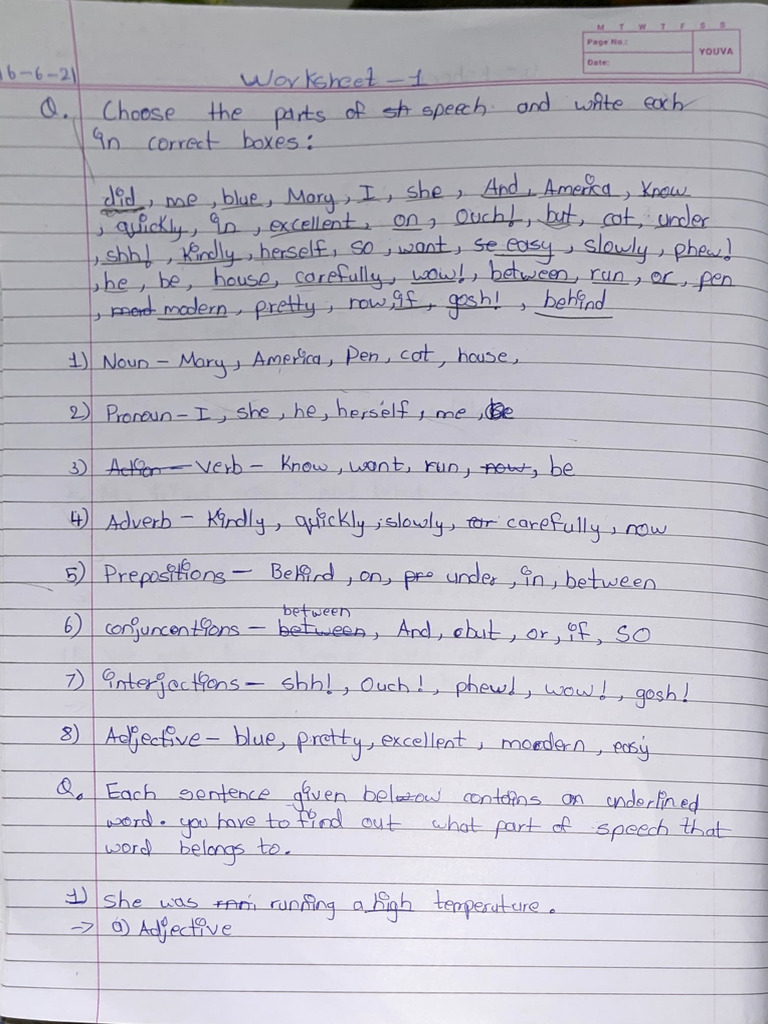 M T W T F S S
Page No.:
YOUVA
Date:
16-6-21
Worksheet-1
Q. Choose the parts of speech and write each
in correct boxes:
did, me, blue, Mary, I, she, And, America, Know
, quickly, in, excellent, on, Ouch!, but, cat, under
, shh!, kindly, herself, so, want, easy, slowly, phew!
, he, be, house, carefully, wow!, between, run, or, pen
, modern, pretty, now, if, gosh!, behind
1) Noun - Mary, America, Pen, cat, house,
2) Pronoun - I, she, he, herself, me,
3) Verb - Know, want, run, now, be
4) Adverb - kindly, quickly, slowly, carefully, now
5) Prepositions - Behind, on, pre under, in, between
between
6) conjuncentions - between, And, but, or, if, SO
7) interjections - shh!, Ouch!, phew!, wow!, gosh!
8) Adjective - blue, pretty, excellent, modern, easy
Q. Each sentence given below contains an underlined
word. you have to find out what part of speech that
word belongs to.
1) She was running a high temperature.
→ a) Adjective